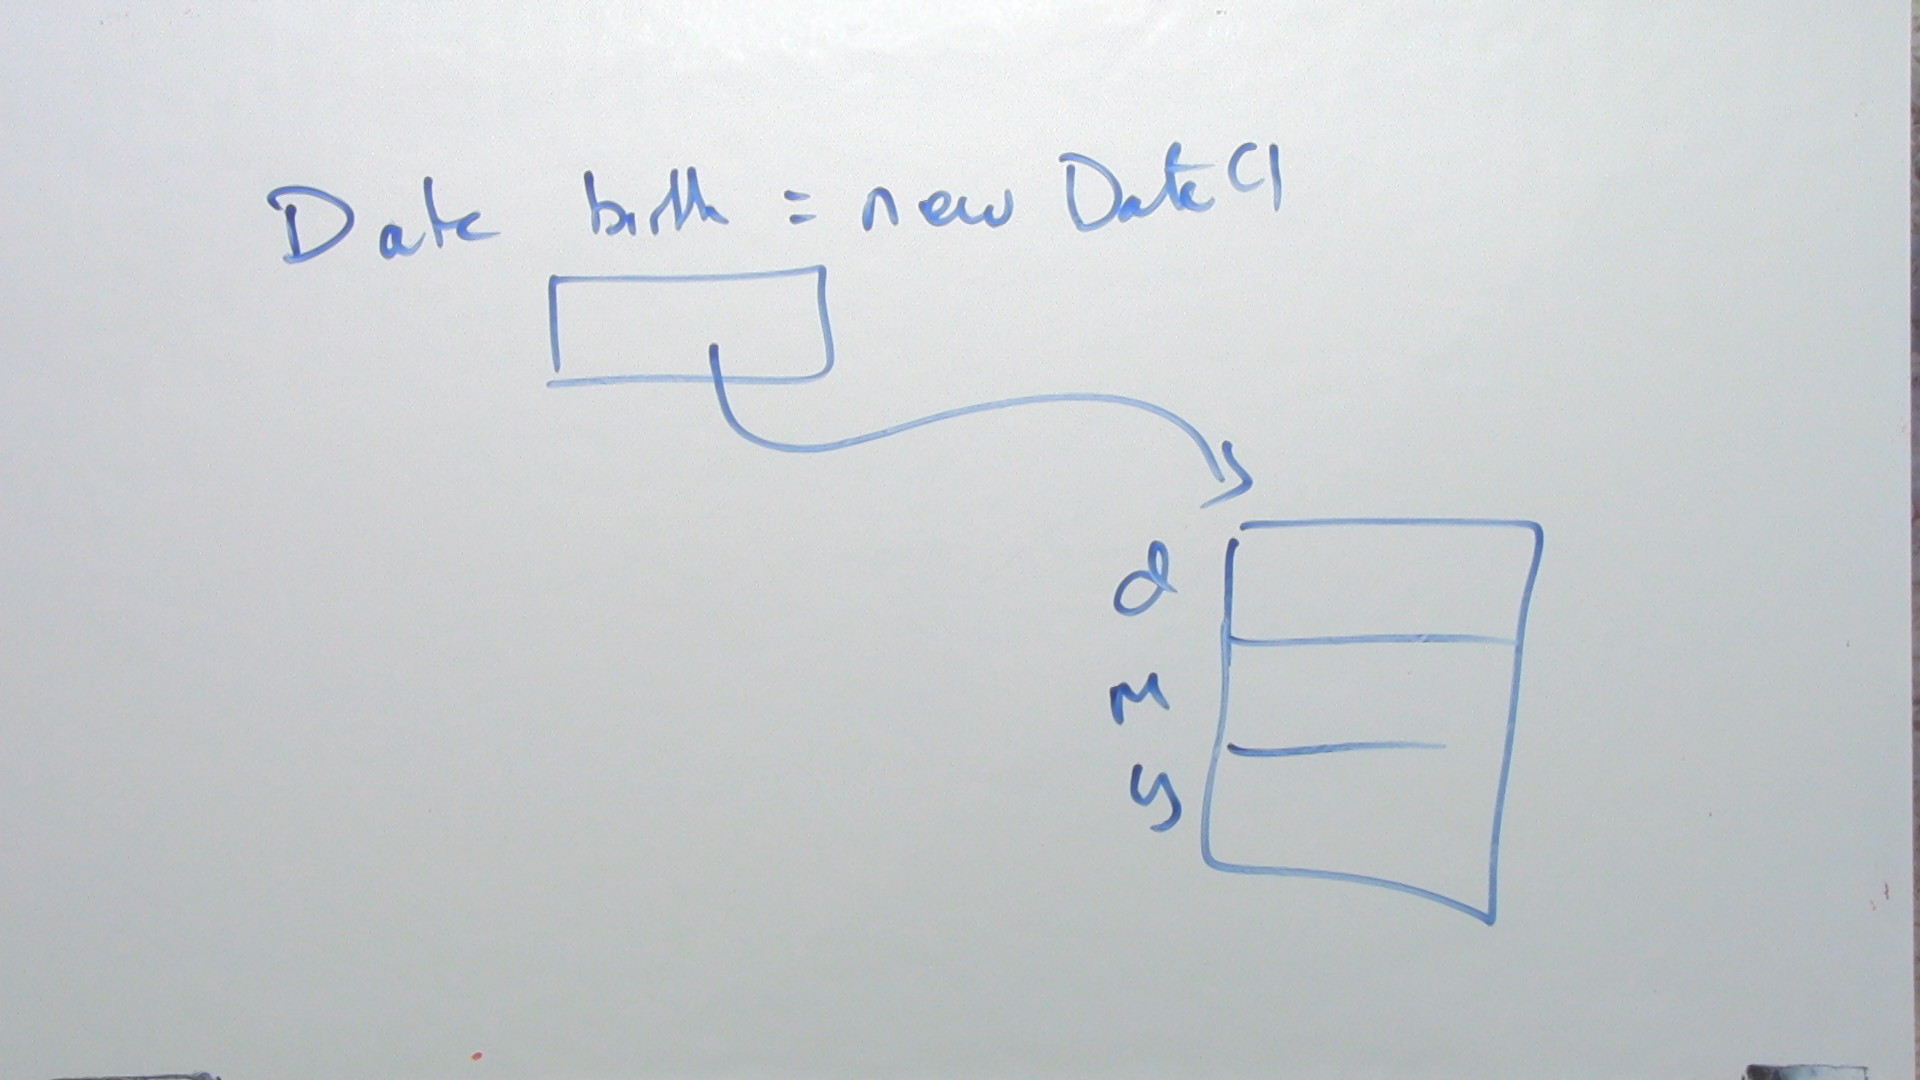 Date birth = new Date()
d
M
y